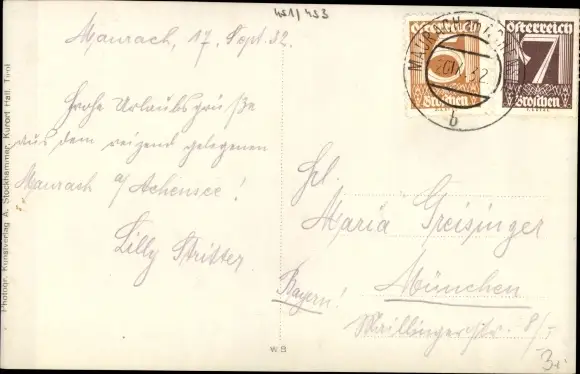 451/453
Maurach, 17. Sept. 32.
Frohe Urlaubsgrüße
aus dem reizend gelegenen
Maurach a/Achensee!
Lilly Stritter
Österreich
5
Groschen
Österreich
7
Groschen
MAURACH
32
b
Frl.
Maria Greisinger
München
Bayern!
Maillingerstr. 8/I
Photogr. Kunstverlag A. Stockhammer, Kurort Hall, Tirol
W B
3.-